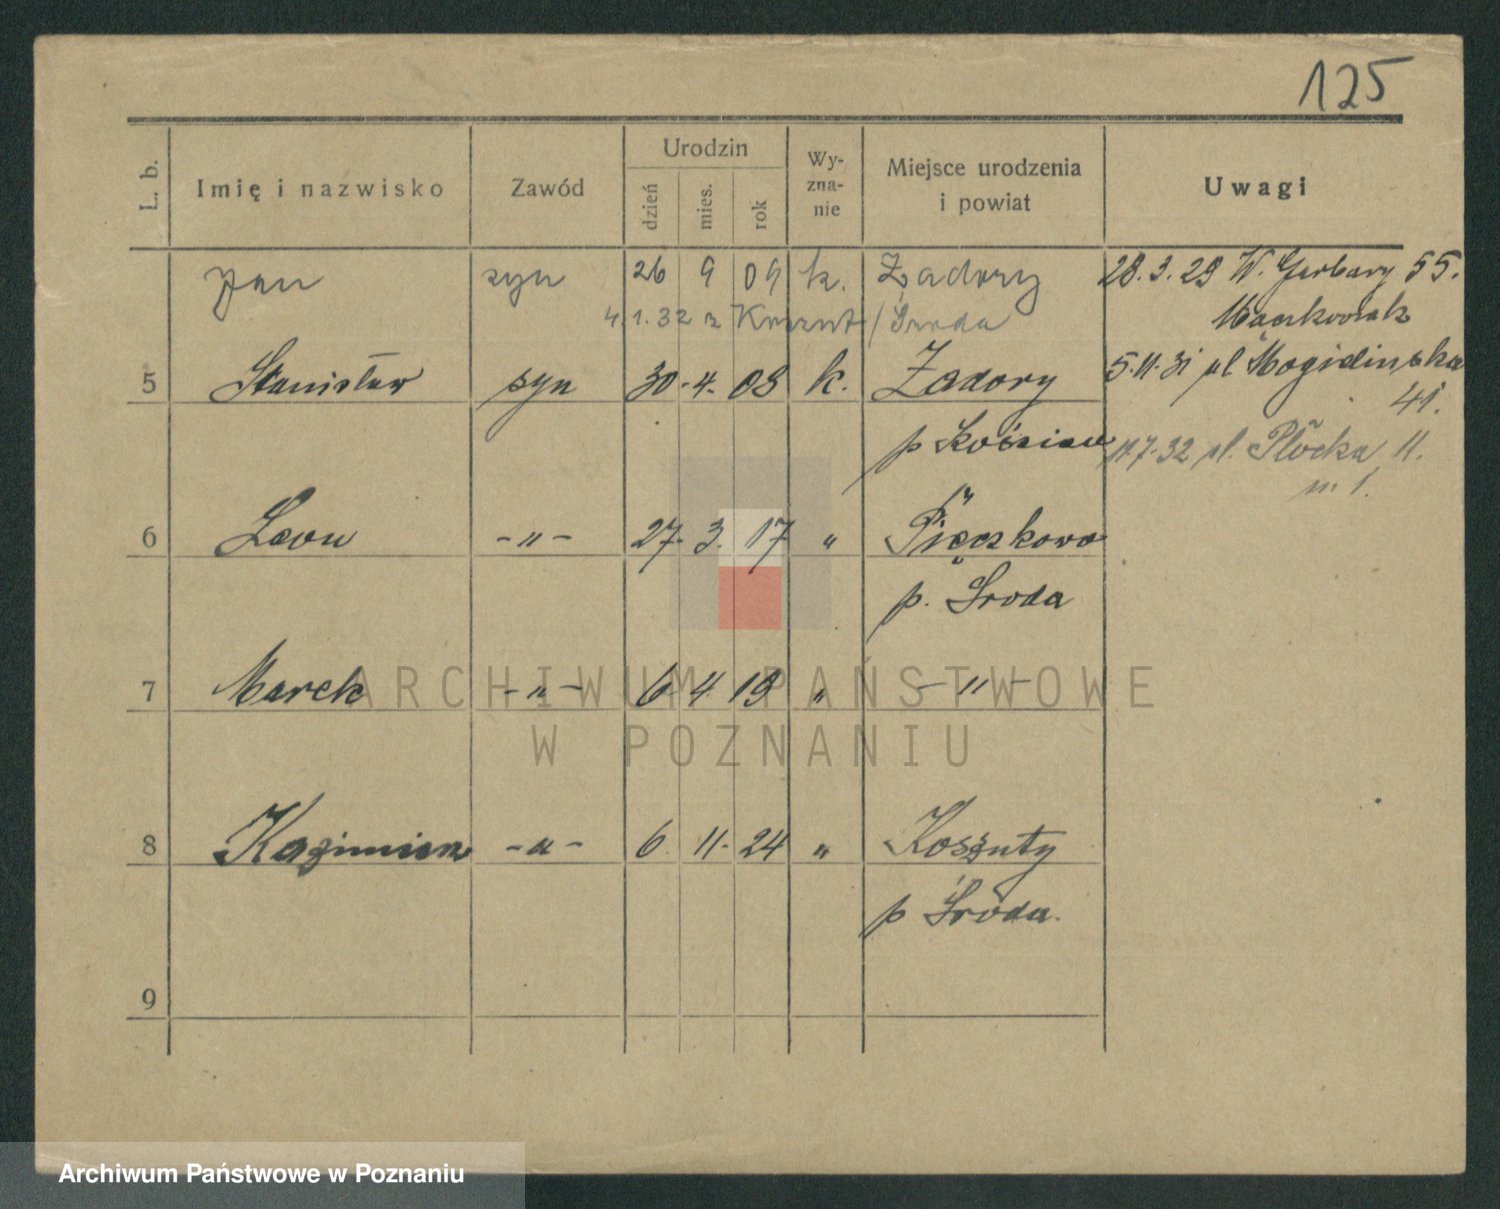 125
L. b. Imię i nazwisko Zawód Urodzin dzień mies. rok Wy- zna- nie Miejsce urodzenia i powiat Uwagi
Jan syn 26 9 09 k. Zadory 28.3.29 W. Garbary 55.
4.1.32 z Koszut / Środa Maczkowiak
5 Stanisław syn 30. 4. 08 k. Zadory 5.11.31 ul Mogilińska
41.
p Kościan 11.7.32 ul. Płocka 11.
m 1.
6 Leon -„- 27. 3. 17 „ Pięczkowo
p. Środa
7 Marek -„- 6 4. 19 „ -„-
8 Kazimierz -„- 6. 11. 24 „ Koszuty
p Środa.
9
ARCHIWUM PAŃSTWOWE
W POZNANIU
Archiwum Państwowe w Poznaniu